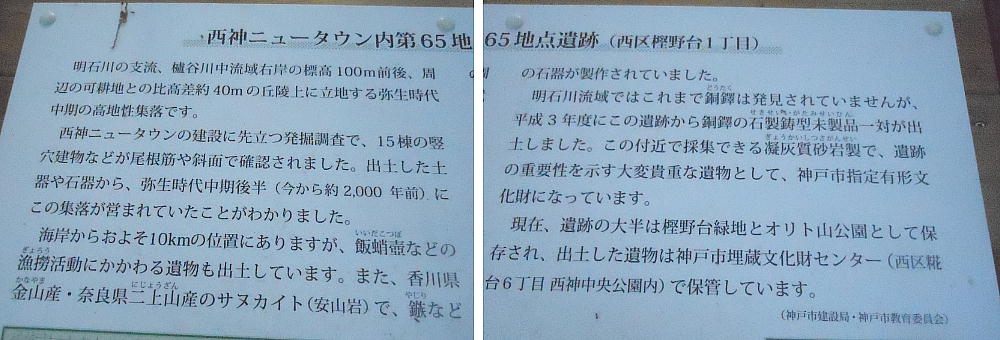 西神ニュータウン内第65地
明石川の支流、櫨谷川中流域右岸の標高100m前後、周
辺の可耕地との比高差約40mの丘陵上に立地する弥生時代
中期の高地性集落です。
西神ニュータウンの建設に先立つ発掘調査で、15棟の竪
穴建物などが尾根筋や斜面で確認されました。出土した土
器や石器から、弥生時代中期後半（今から約2,000 年前）に
この集落が営まれていたことがわかりました。
海岸からおよそ10kmの位置にありますが、飯蛸壺などの
いいだこつぼ
漁撈活動にかかわる遺物も出土しています。また、香川県
ぎょろう
金山産・奈良県二上山産のサヌカイト（安山岩）で、鏃など
かなやま
にじょうざん
やじり
65地点遺跡（西区樫野台1丁目）
の石器が製作されていました。
明石川流域ではこれまで銅鐸は発見されていませんが、
どうたく
平成３年度にこの遺跡から銅鐸の石製鋳型未製品一対が出
せきせいいがたみせいひん
土しました。この付近で採集できる凝灰質砂岩製で、遺跡
ぎょうかいしつさがんせい
の重要性を示す大変貴重な遺物として、神戸市指定有形文
化財になっています。
現在、遺跡の大半は樫野台緑地とオリト山公園として保
存され、出土した遺物は神戸市埋蔵文化財センター（西区糀
台６丁目 西神中央公園内）で保管しています。
（神戸市建設局・神戸市教育委員会）